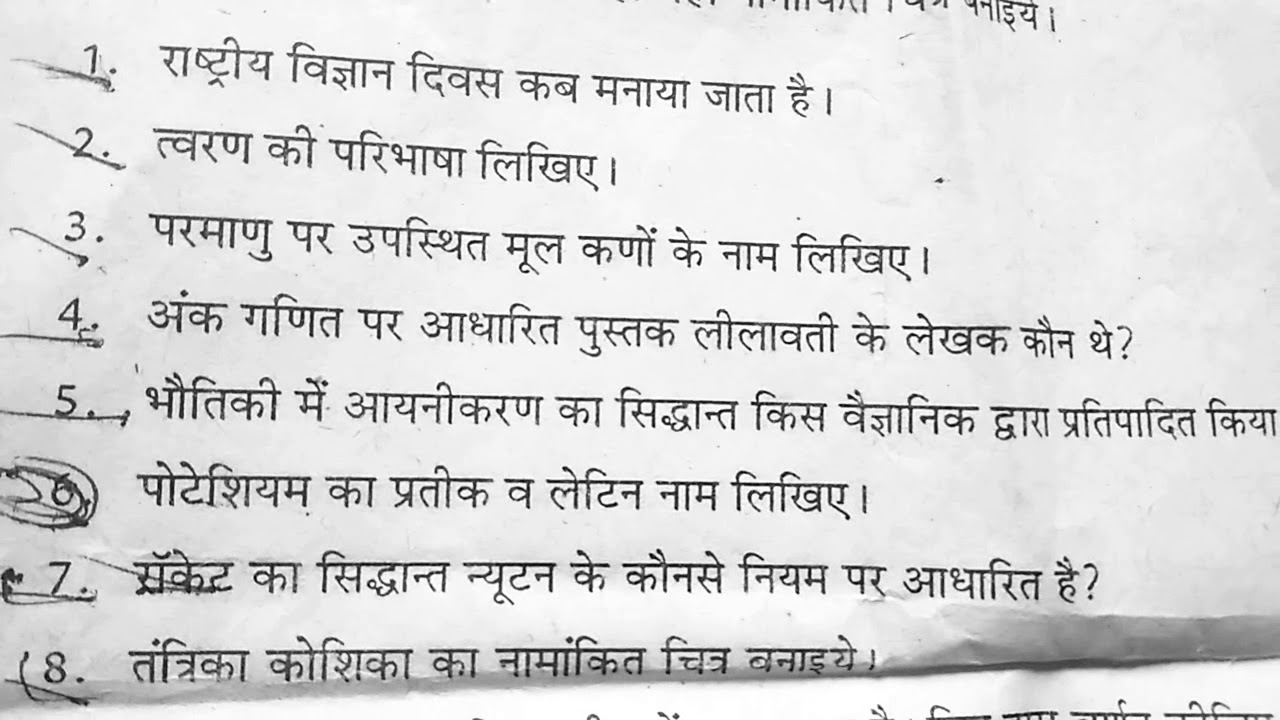 बनाइये।
1. राष्ट्रीय विज्ञान दिवस कब मनाया जाता है।
2. त्वरण की परिभाषा लिखिए।
3. परमाणु पर उपस्थित मूल कणों के नाम लिखिए।
4. अंक गणित पर आधारित पुस्तक लीलावती के लेखक कौन थे?
5. भौतिकी में आयनीकरण का सिद्धान्त किस वैज्ञानिक द्वारा प्रतिपादित किया
6. पोटेशियम का प्रतीक व लेटिन नाम लिखिए।
7. रॉकेट का सिद्धान्त न्यूटन के कौनसे नियम पर आधारित है?
8. तंत्रिका कोशिका का नामांकित चित्र बनाइये।